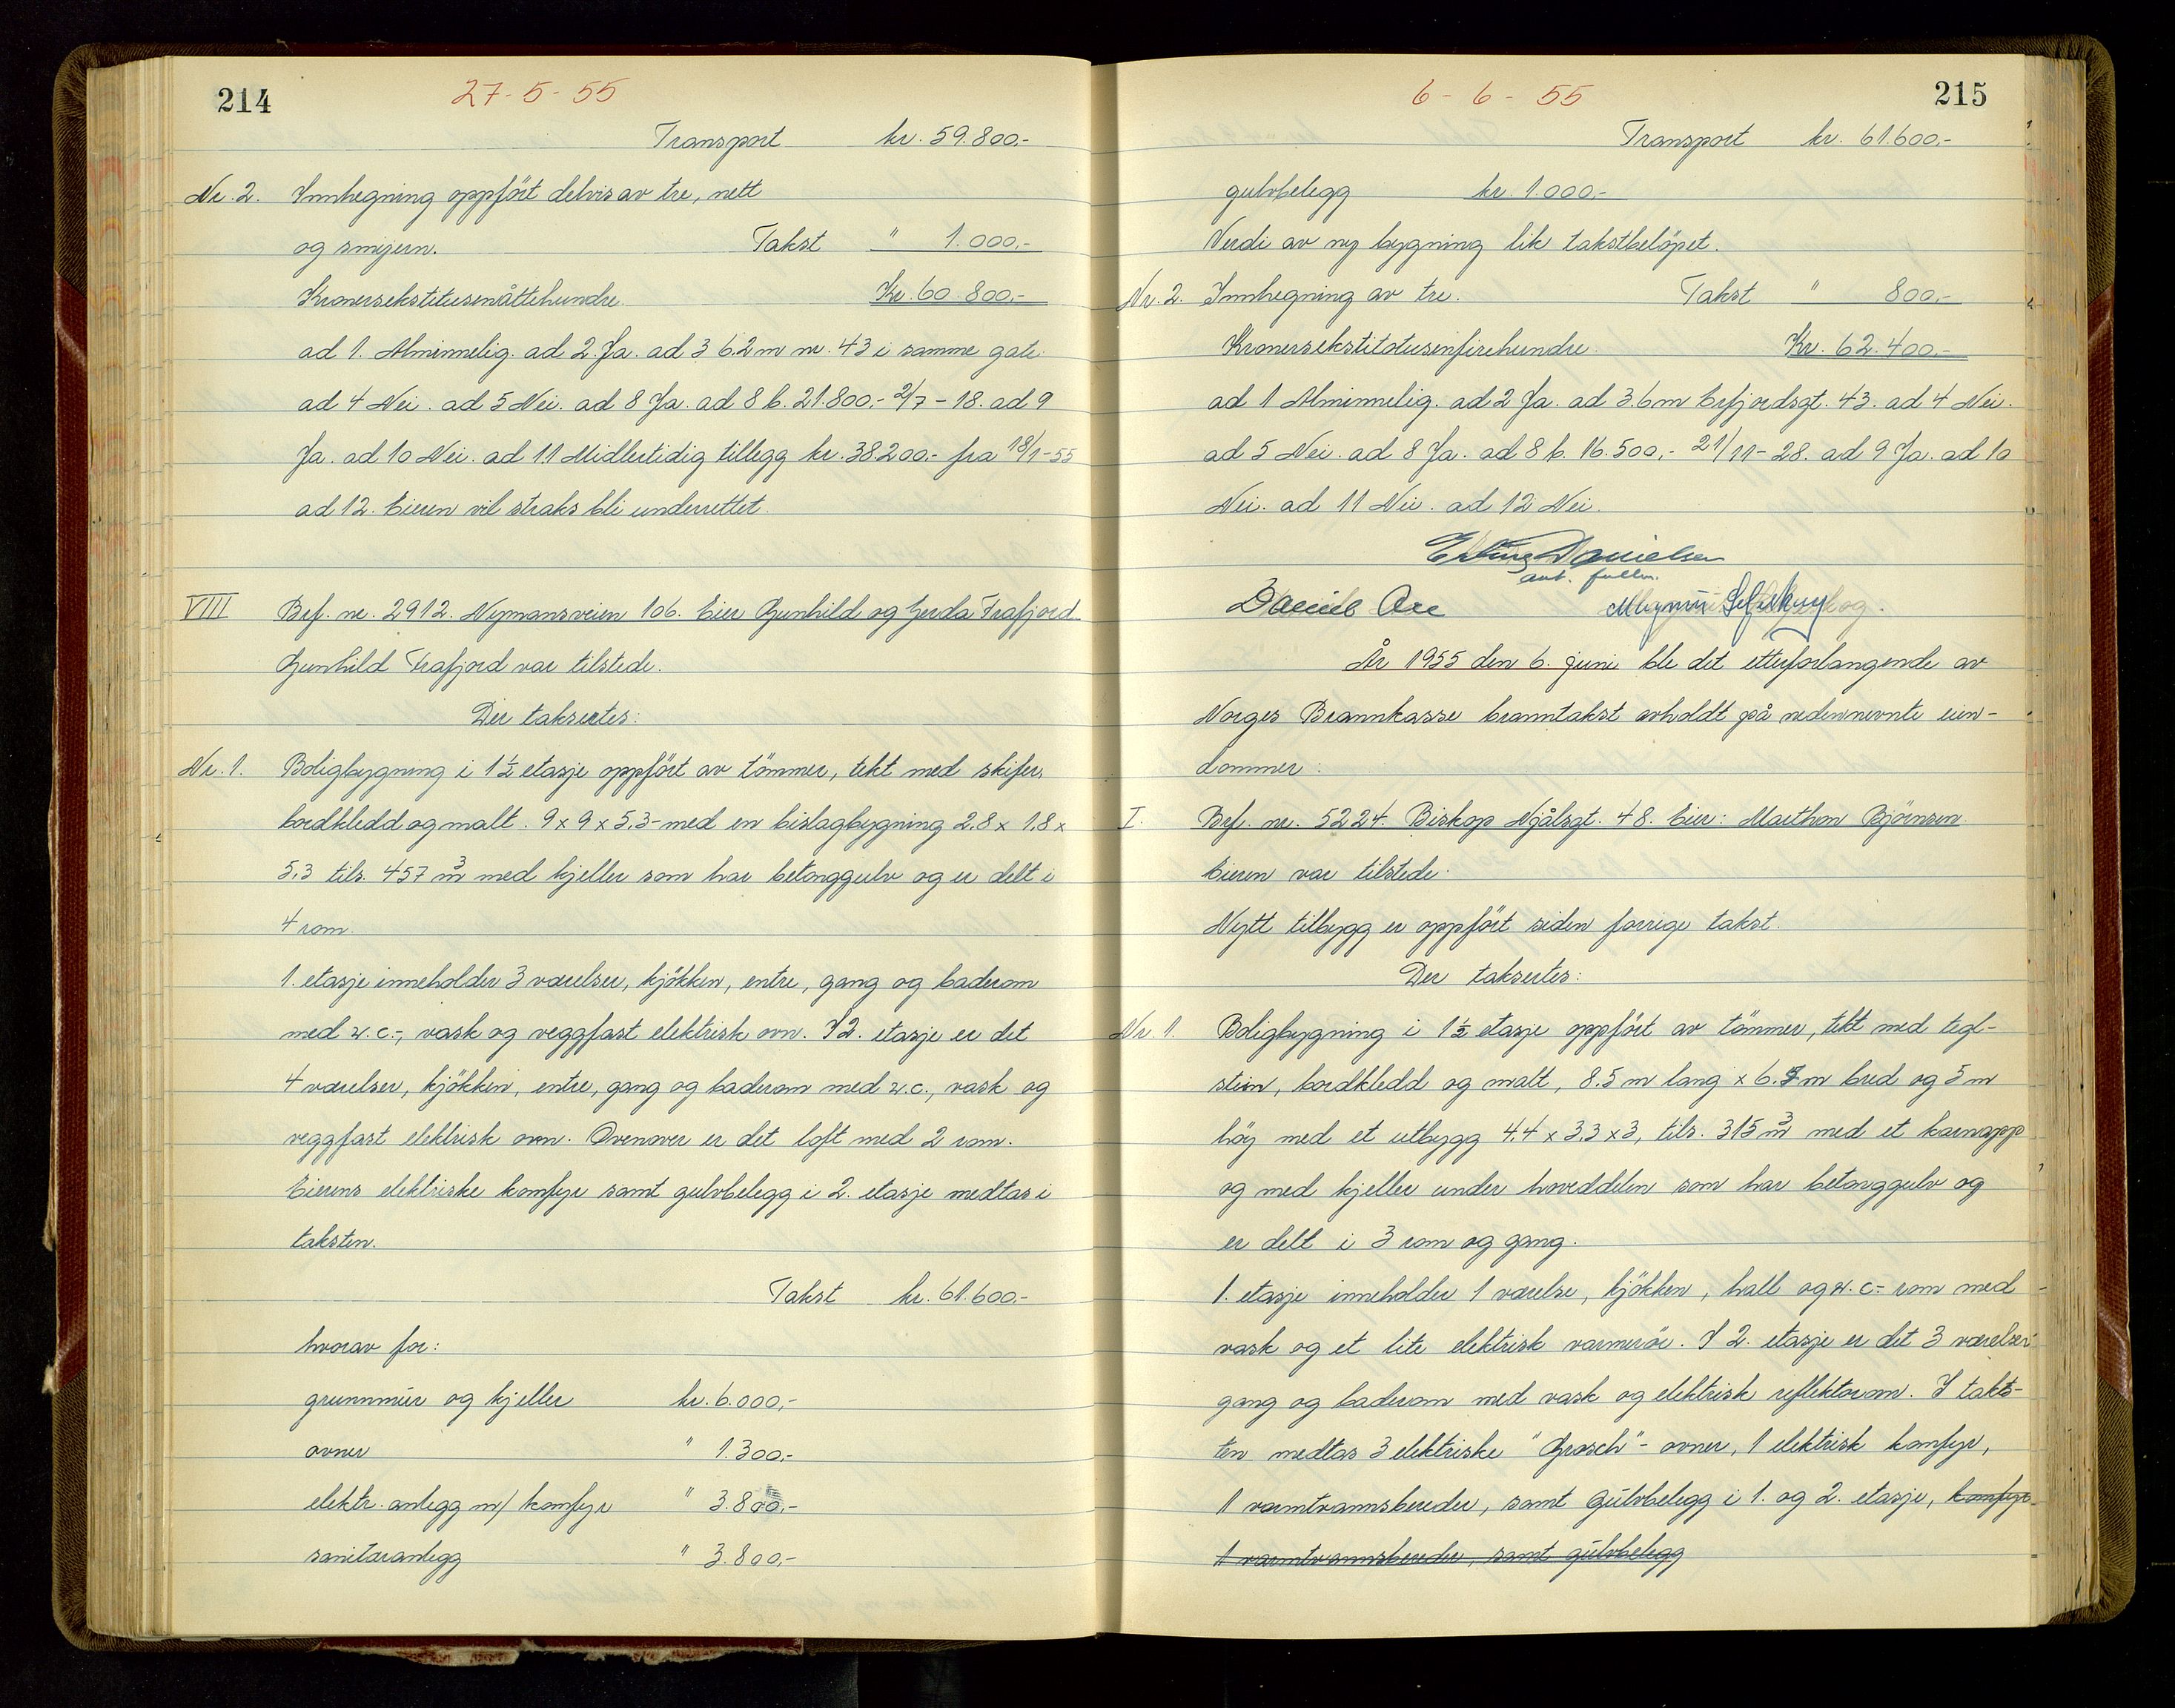 214
27-5-55
Transport kr. 59.800.-
Nr. 2. Innhegning oppfört delvis av tre, nett
og smijern. Takst " 1.000,-
Kronersekstitusenåttehundre. Kr. 60.800,-
ad 1. Alminnelig. ad 2 Ja. ad 3 6.2 m nr. 43 i samme gate.
ad 4 Nei. ad 5 Nei. ad 8 Ja. ad 8 b. 21.800,- 2/7-18. ad 9
Ja. ad 10 Nei. ad 11 Midlertidig tillegg kr. 38.200.- fra 18/1-55
ad 12. Eieren vil straks bli underrettet.
VIII Brf. nr. 2912. Nymansveien 106. Eier Gunhild og Gerda Frafjord.
Gunhild Frafjord var tilstede.
Der taksertes:
Nr. 1. Boligbygning i 1½ etasje oppfört av tömmer, tekt med skifer,
bordkledd og malt. 9 x 9 x 5,3 - med en bislagbygning 2,8 x 1,8 x
5,3 tils. 457 m3 med kjeller som har betonggulv og er delt i
4 rom.
1. etasje inneholder 3 værelser, kjökken, entre, gang og baderom
med w.c.-, vask og veggfast elektrisk ovn. I 2. etasje er det
4 værelser, kjökken, entre, gang og baderom med w.c., vask og
veggfast elektrisk ovn. Ovenover er det loft med 2 rom.
Eierens elektriske komfyr samt gulvbelegg i 2. etasje medtas i
taksten.
Takst kr. 61.600.-
hvorav for:
grunnmur og kjeller kr. 6.000,-
ovner " 1.300,-
elektr. anlegg m/ komfyr " 3.800,-
sanitæranlegg " 3.800,-
6-6-55
215
Transport kr. 61.600,-
gulvbelegg kr. 1.000,-
Verdi av ny bygning lik takstbelöpet.
Nr. 2. Innhegning av tre. Takst " 800,-
Kronersekstitotusenfirehundre. Kr. 62.400,-
ad 1 Alminnelig. ad 2 Ja. ad 3. 6 m Erfjordsgt. 43. ad 4 Nei.
ad 5 Nei. ad 8 Ja. ad 8 b. 16.500,- 21/11-28. ad 9 Ja. ad 10
Nei. ad 11 Nei. ad 12 Nei.
Erling Danielsen
aut. fullm.
Daniel Are
År 1955 den 6. juni ble det etterforlangende av
Norges Brannkasse branntakst avholdt på nedennevnte eien-
dommer:
I. Brf. nr. 5224. Biskop Njålsgt. 48. Eier: Marthon Bjørnsen
Eieren var tilstede.
Nytt tilbygg er oppfört siden forrige takst.
Der taksertes:
Nr. 1. Boligbygning i 1½ etasje oppfört av tömmer, tekt med tegl-
stein, bordkledd og malt, 8.5 m lang x 6.5 m bred og 5 m
höy med et utbygg 4,4 x 3,3 x 3, tils. 315 m3 med et karnapp
og med kjeller under hoveddelen som har betonggulv og
er delt i 3 rom og gang.
1. etasje inneholder 1 værelse, kjökken, hall og w.c.- rom med
vask og et lite elektrisk varmerör. I 2. etasje er det 3 værelser
gang og baderom med vask og elektrisk reflektorovn. I takts-
ten medtas 3 elektriske "Grosch"- ovner, 1 elektrisk komfyr,
1 varmtvannsbereder, samt gulvbelegg i 1. og 2. etasje, komfyr
1 varmtvannsbereder, samt gulvbelegg